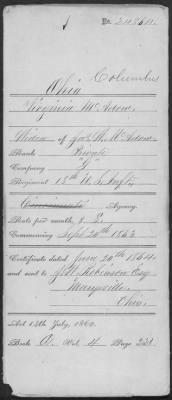 No. 24864.
Columbus
Ohio
Virginia McAdow
Widow of Jno. W. McAdow
Rank Private
Company "G"
Regiment 18th U.S. Infty
Cincinnati Agency.
Rate per month, $ 8.
Commencing Sept. 20th 1863
Certificate dated June 20th 1864
and sent to J. W. Robinson Esq
Marysville,
Ohio.
Act 14th July, 1862.
Book A. Vol. 4 Page 221